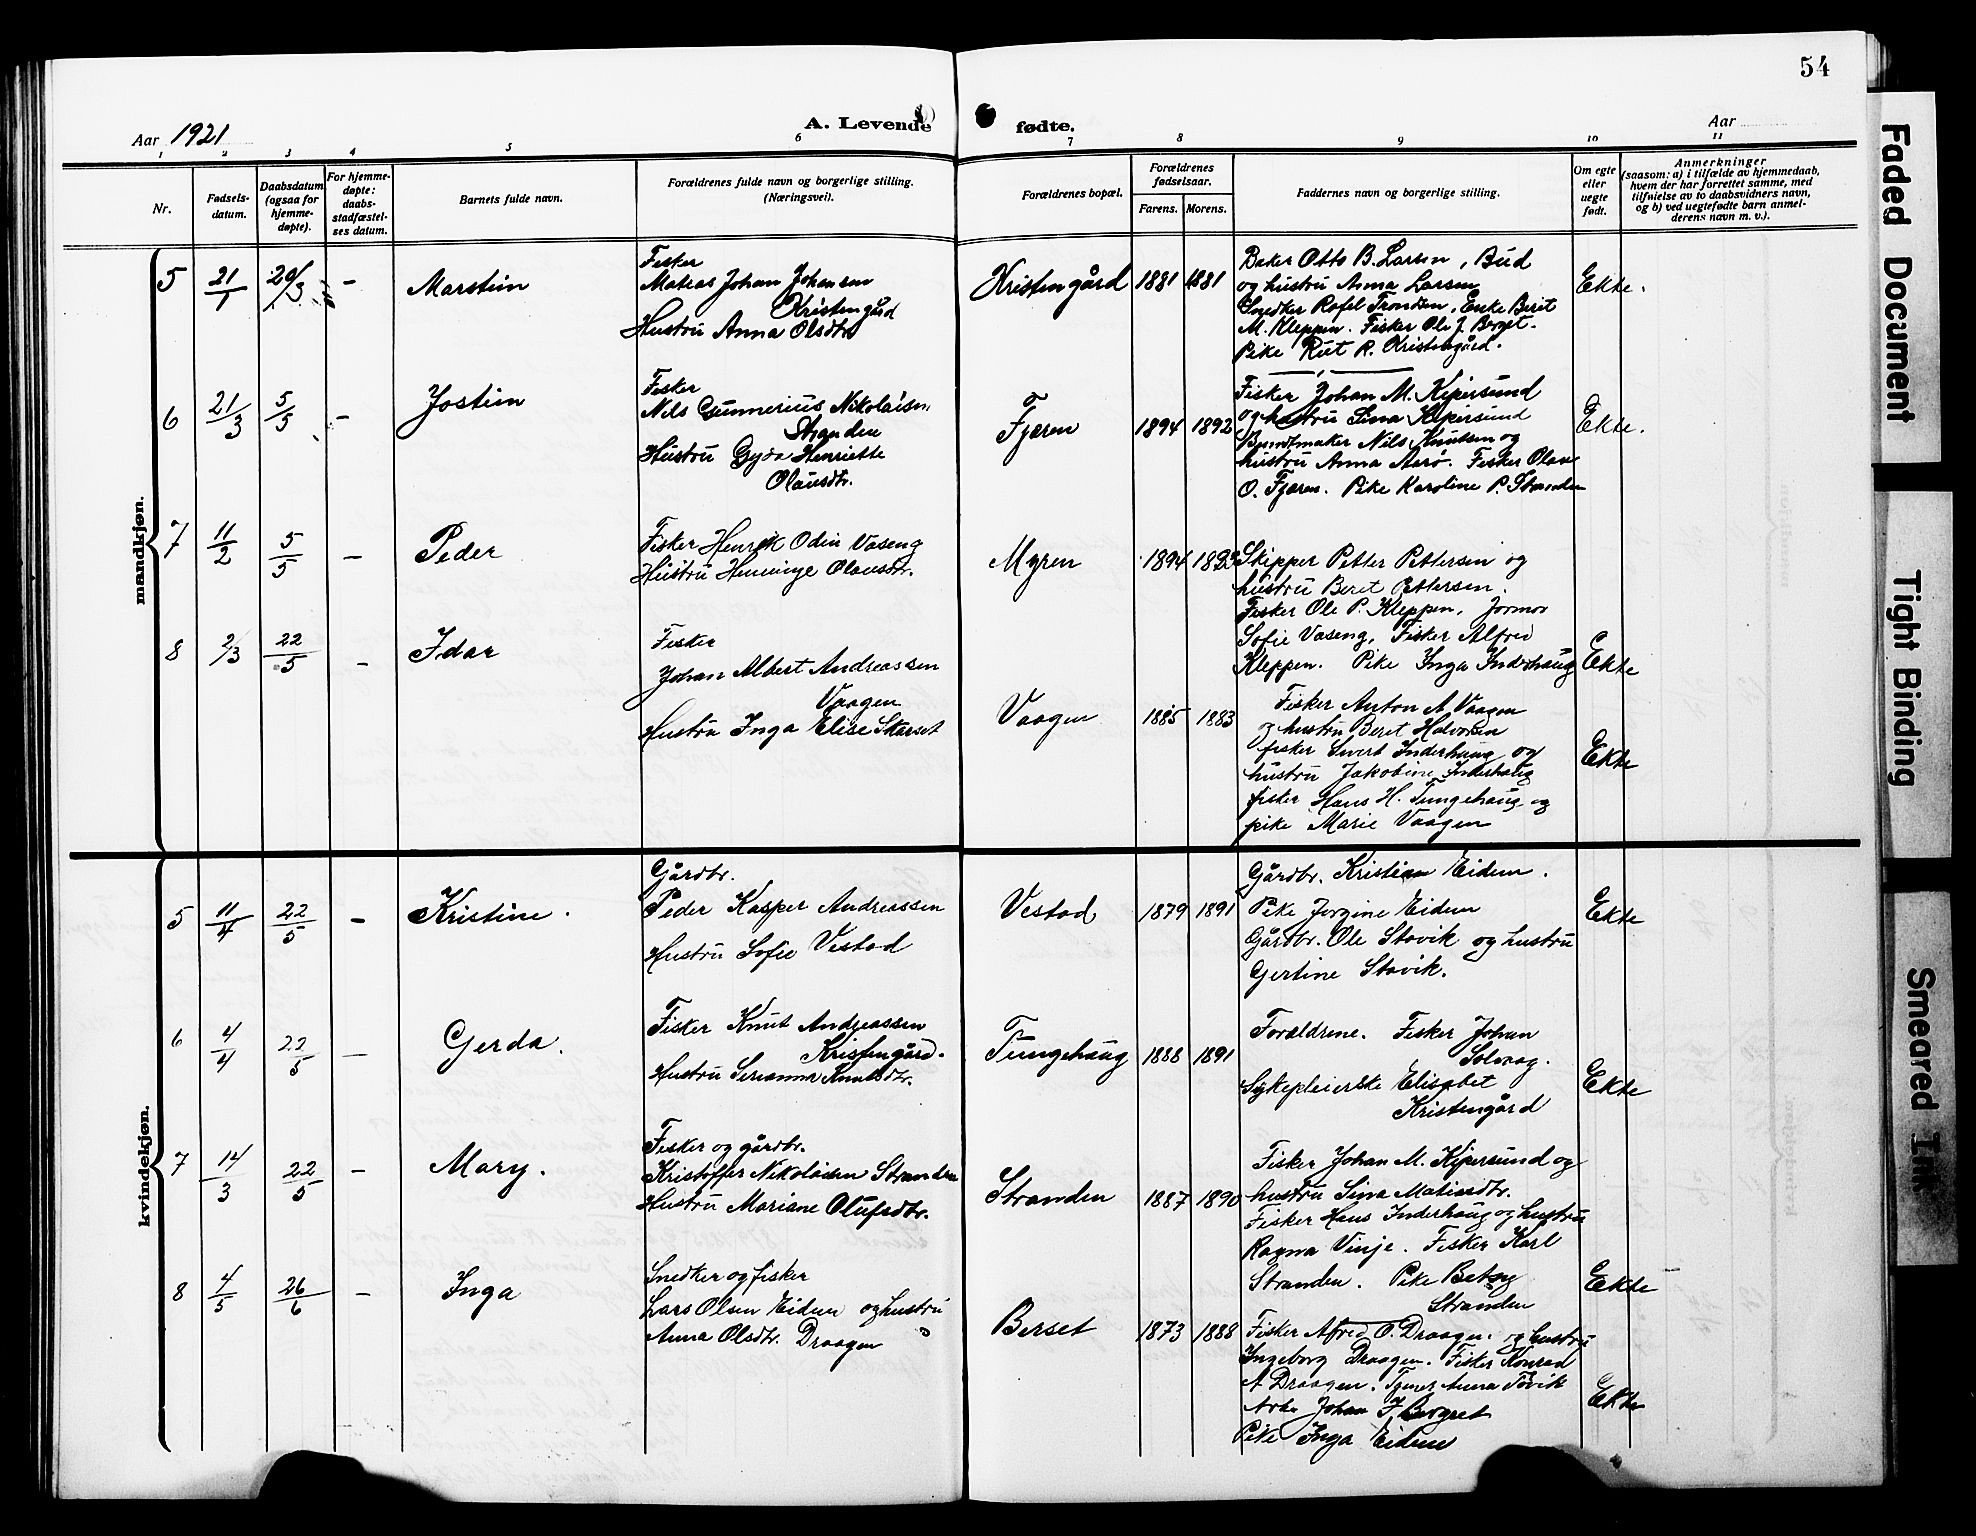 54
Aar 1921
A. Levende fødte.
Aar
1 2 3 4 5 6 7 8 9 10 11
Nr.
Fødsels-
datum.
Daabsdatum
(ogsaa for
hjemme-
døpte).
For hjemme-
døpte:
daabs-
stadfæstel-
ses datum.
Barnets fulde navn.
Forældrenes fulde navn og borgerlige stilling.
(Næringsvei).
Forældrenes bopæl.
Forældrenes
fødselsaar.
Farens. Morens.
Faddernes navn og borgerlige stilling.
Om egte
eller
uegte
født.
Anmerkninger
(saasom: a) i tilfælde av hjemmedaab,
hvem der har forrettet samme, med
tilføielse av to daabsvidners navn,
og b) ved uegtefødte barn anmel-
derens navn m. v.).
mandkjøn.
5 21/1 20/3 - Marstein
Fisker
Matias Johan Johansen
Kristengård
Hustru Anna Olsdtr
Kristengård 1881 1881
Baker Otto B. Larsen, Bud
og hustru Anna Larsen
Snedker Rafel Trondsen, Enke Beret
M. Kleppen. Fisker Ole J. Berset.
Pike Rut R. Kristengård.
Ekte.
6 21/3 5/5 - Jostein
Fisker
Nils Gunnerius Nikolaisen
Stranden
Hustru Gyda Henriette
Olausdtr.
Fjæren 1894 1892
Fisker Johan M. Kipersund
og hustru Sina Kipersund
Buntmaker Nils Knutsen og
hustru Anna Aarø. Fisker Olav
O. Fjæren. Pike Karoline P. Stranden
Ekte.
7 11/2 5/5 - Peder
Fisker Henrik Odin Vaseng
Hustru Henninge Olausdtr.
Myren 1894 1893
Skipper Petter Pettersen og
hustru Beret Pettersen.
Fisker Ole P. Kleppen, Jormor
Sofie Vaseng, Fisker Alfred
Kleppen. Pike Inga Inderhaug
Ekte
8 2/3 22/5 - Idar
Fisker
Johan Albert Andreassen
Vaagen
Hustru Inga Elise Skarset
Vaagen 1885 1883
Fisker Anton A Vaagen
og hustru Beret Halvorsen
fisker Sivert Inderhaug og
hustru Jakobine Inderhaug
fisker Hans H. Tungehaug og
pike Marie Vaagen
Ekte
kvindekjøn.
5 11/4 22/5 - Kristine.
Gårdbr.
Peder Kasper Andreassen
Hustru Sofie Vestad
Vestad 1879 1891
Gårdbr. Kristian Eidem.
Pike Jorgine Eidem
Gårdbr. Ole Stavik og hustru
Gertine Stavik.
Ekte
6 4/4 22/5 - Gerda.
Fisker Knut Andreassen
Kristengård.
Hustru Serianna Knutsdtr.
Tungehaug 1888 1891
Forældrene. Fisker Johan
Solvaag.
Sykepleierske Elisabet
Kristengård
Ekte
7 14/3 22/5 - Mary.
Fisker og gårdbr.
Kristoffer Nikolaisen Stranden
Hustru Mariane Olufsdtr.
Stranden 1887 1890
Fisker Johan M. Kipersund og
hustru Sina Matiasdtr.
Fisker Hans Inderhaug og hustru
Ragna Vinje. Fisker Karl
Stranden. Pike Betsy
Stranden
Ekte
8 4/5 26/6 - Inga
Snedker og fisker
Lars Olsen Eidem og hustru
Anna Olsdtr. Draagen
Berset 1873 1888
Fisker Alfred O. Draagen. og hustru
Ingeborg Draagen. Fisker Konrad
A Draagen. Tjener Anna Tøvik
Johan F. Bergset
Pike Inga Eidem
Ekte
Faded Document
Tight Binding
Smeared Ink